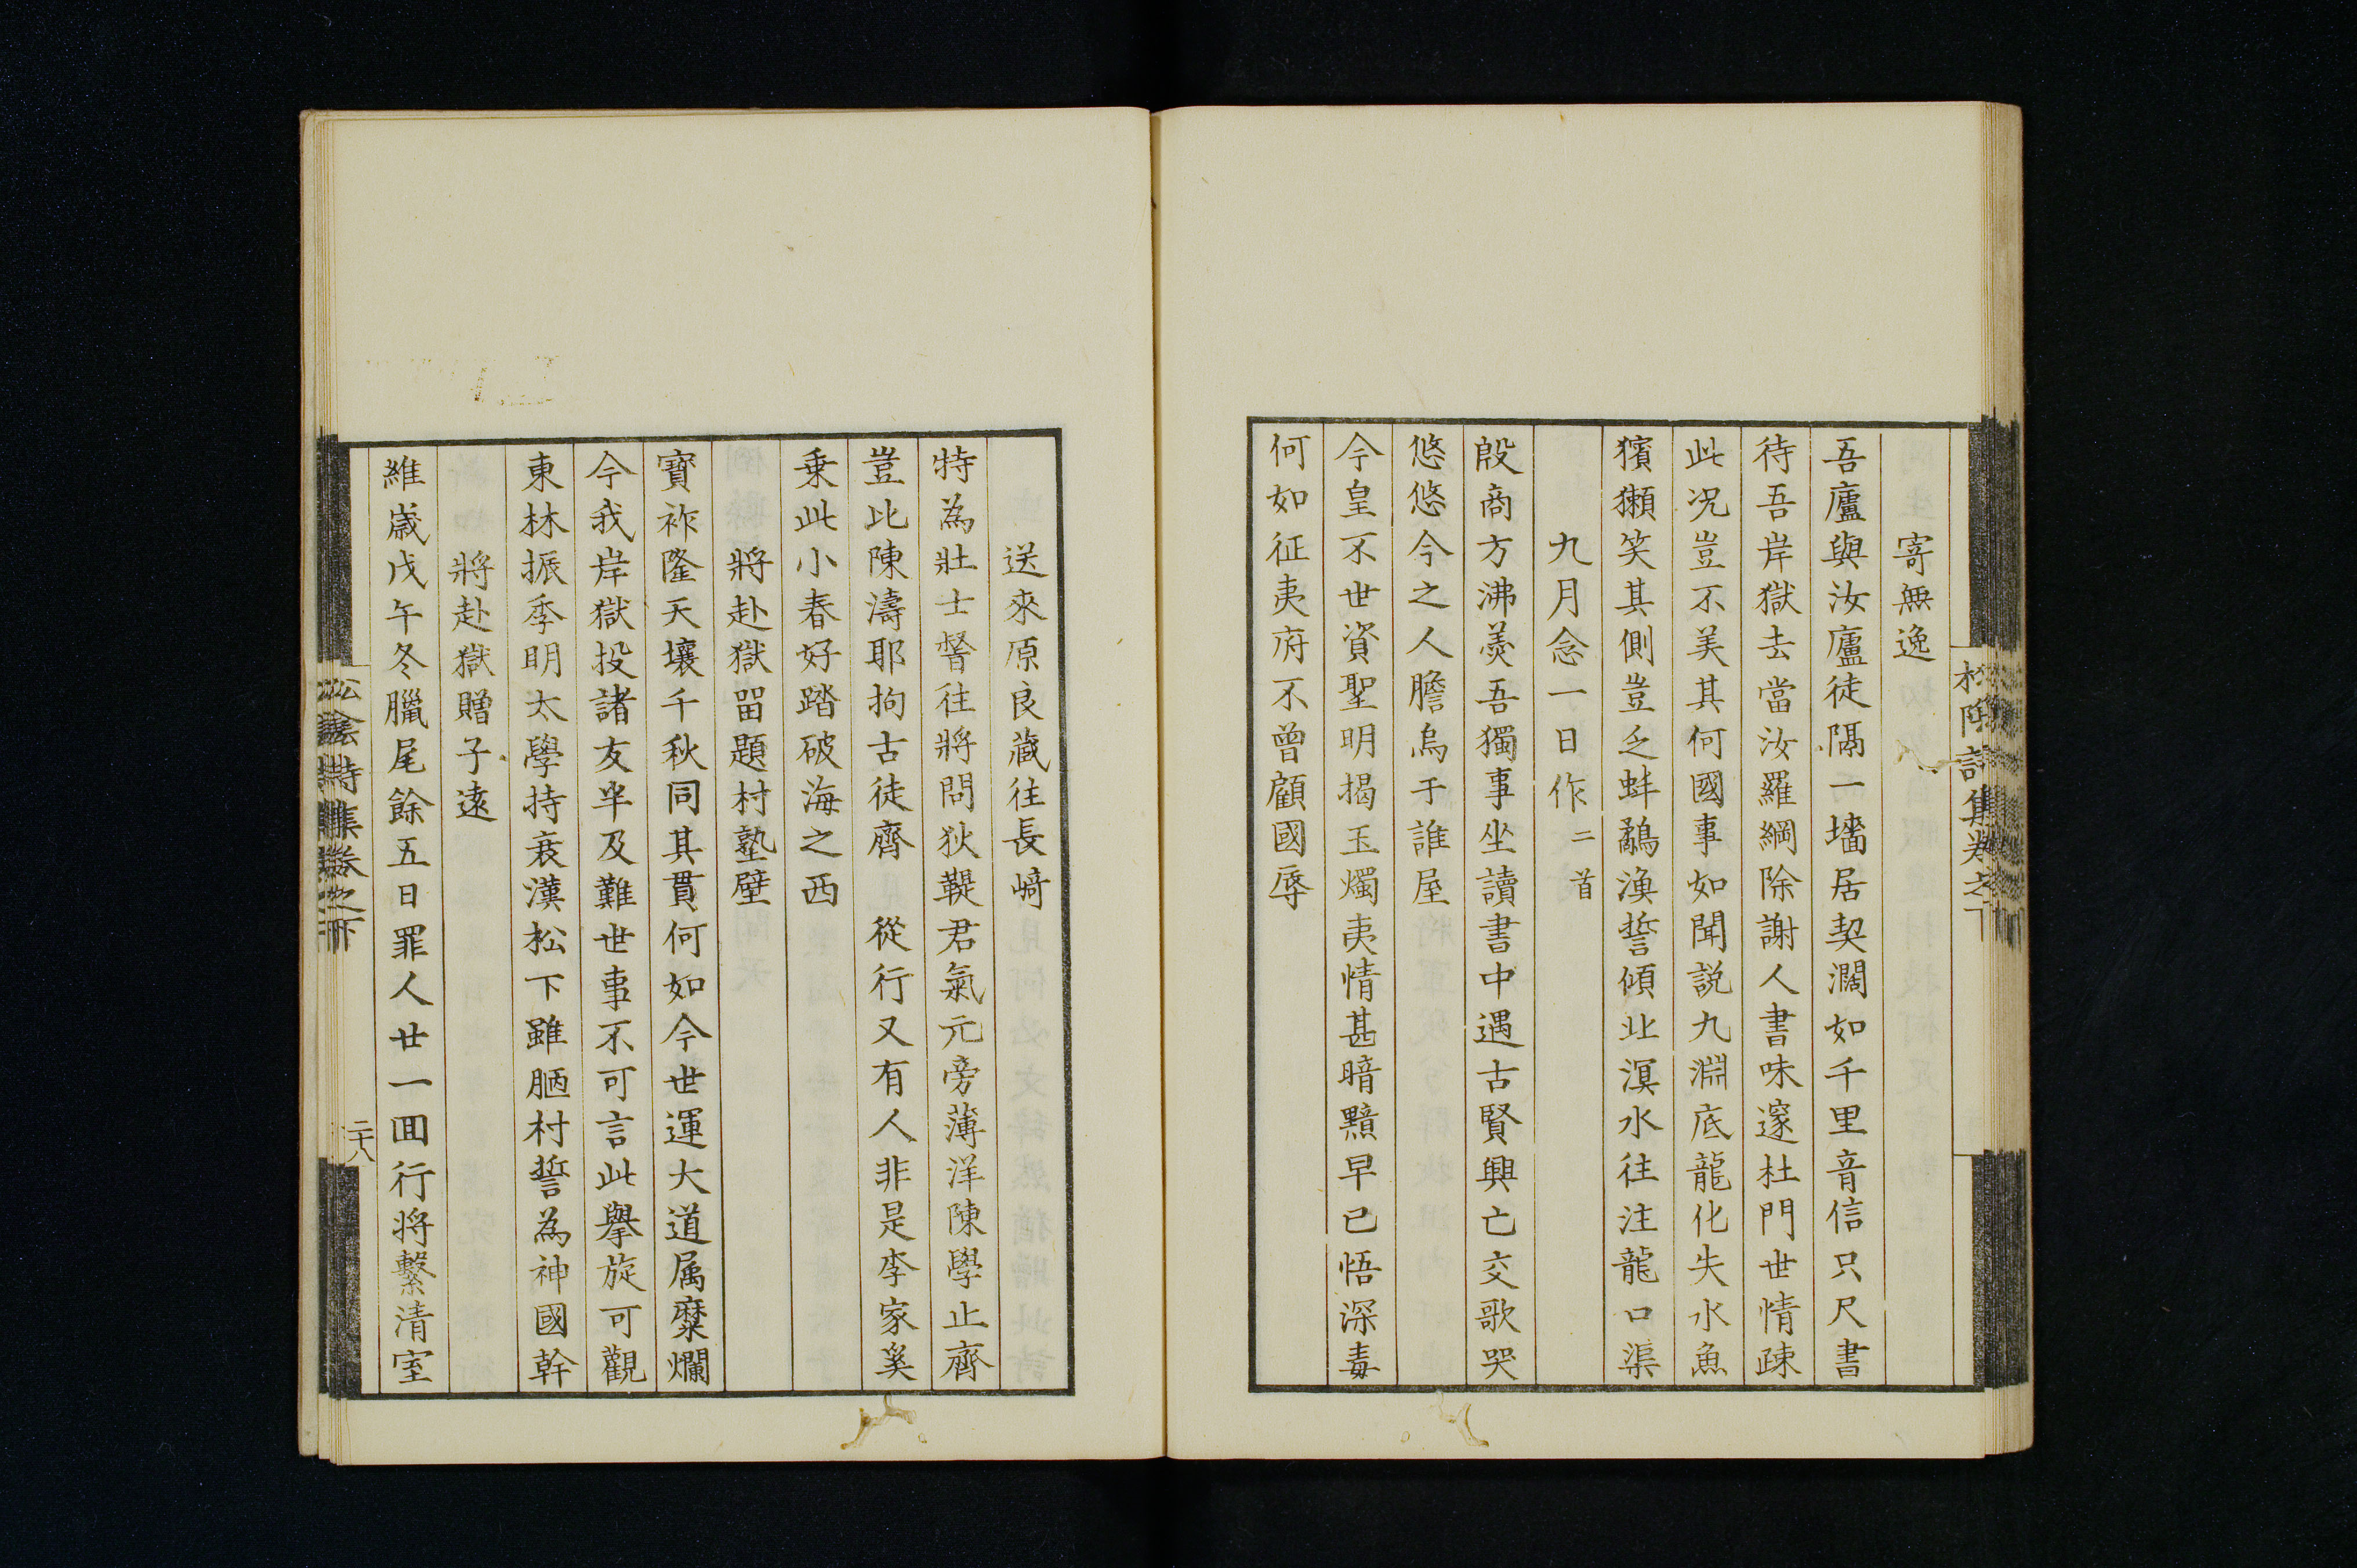 寄無逸
吾廬與汝廬徒隔一墻居契濶如千里音信只尺書
待吾岸獄去當汝羅網除謝人書味邃杜門世情疎
此况豈不美其何國事如聞説九淵底龍化失水魚
獱獺笑其側豈乏蚌鷸漁誓傾北溟水往注龍口渠
九月念一日作二首
殷商方沸羹吾獨事坐讀書中遇古賢興亡交歌哭
悠悠今之人瞻烏于誰屋
今皇不世資聖明揭玉燭夷情甚暗黯早已悟深毒
何如征夷府不曾顧國辱
松陰詩集卷之下
送來原良藏往長﨑
特為壯士督往將問狄鞮君氣元旁薄洋陳學止齊
豈比陳濤耶拘古徒齊　從行又有人非是李家奚
乗此小春好踏破海之西
將赴獄畱題村塾壁
寶祚隆天壤千秋同其貫何如今世運大道属糜爛
今我岸獄投諸友半及難世事不可言此擧旋可觀
東林振季明太學持衰漢松下雖陋村誓為神國幹
將赴獄贈子遠
維嵗戊午冬臘尾餘五日罪人廿一囬行將繫清室
松陰詩集卷之下
二十八